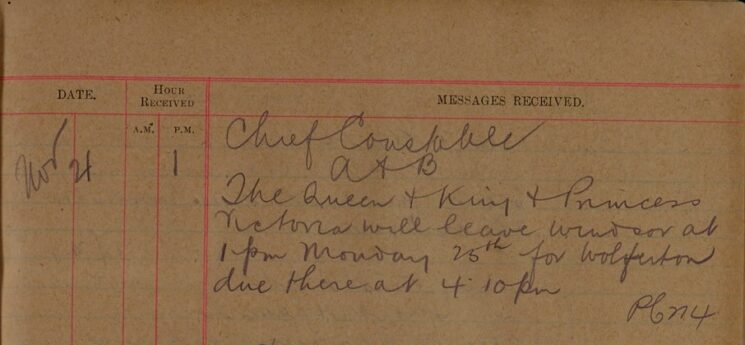 DATE.
HOUR RECEIVED
MESSAGES RECEIVED.
A.M. P.M.
Nov 24 1
Chief Constable
A & B
The Queen & King & Princess
Victoria will leave Windsor at
1 pm Monday 25th for Wolferton
due there at 4.10 pm
PC 274